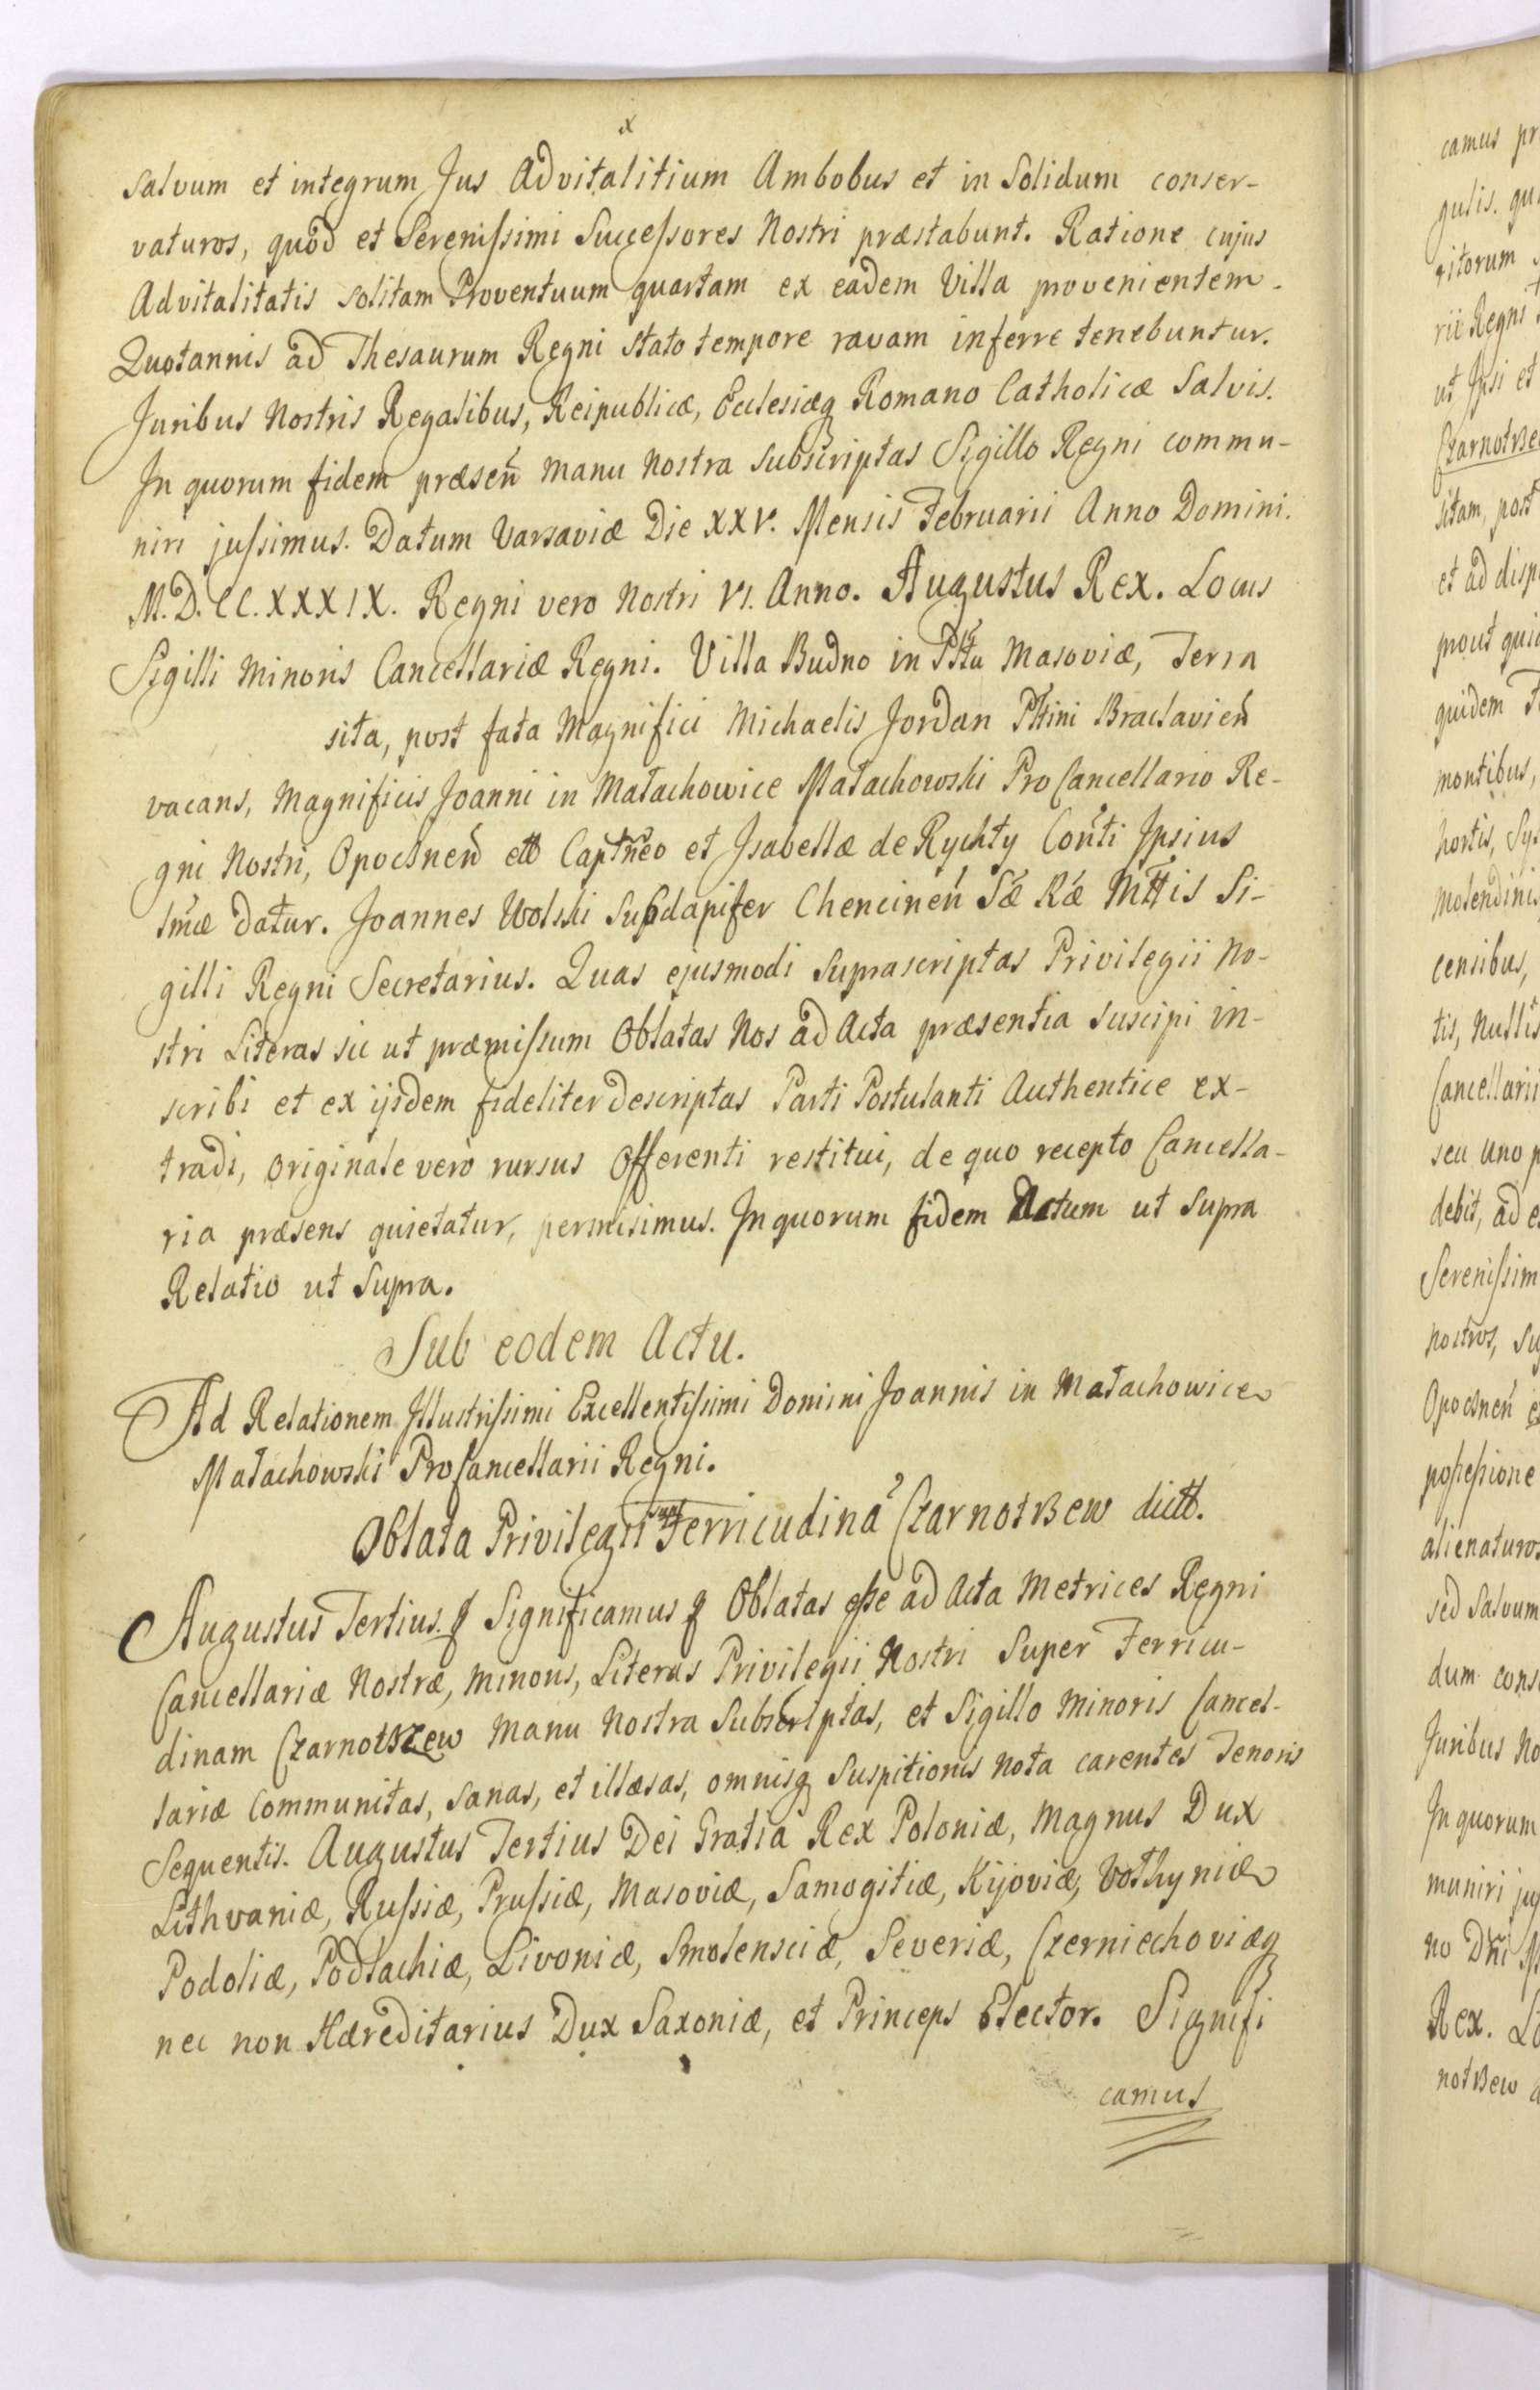 salvum et integrum Jus Advitalitium Ambobus et in Solidum conser-
vaturos, quod et Serenissimi Successores Nostri præstabunt. Ratione cujus
Advitalitatis solitam Proventuum quartam ex eadem Villa provenientem.
Quotannis ad Thesaurum Regni stato tempore ravam inferre tenebuntur.
Juribus Nostris Regalibus, Reipublicæ, Ecclesiæq Romano Catholicæ Salvis.
In quorum fidem præsen̄ manu Nostra subscriptas Sigillo Regni commu-
niri jussimus. Datum Varsaviæ Die XXV. Mensis Februarii Anno Domini.
M.D.CC.XXXIX. Regni vero Nostri VI. Anno. Augustus Rex. Locus
Sigilli Minoris Cancellariæ Regni. Villa Budno in Pttu Masoviæ, Terra
sita, post fata Magnifici Michaelis Jordan Pttini Braclavien̄
vacans, Magnificis Joanni in Małachowice Małachowski ProCancellario Re-
gni Nostri, Opocznen̄ ett Captn̄eo et Isabellæ de Rychty Con̄ti Ipsius
lmæ datur. Joannes Wolski Subdapifer Chencinen̄ Sæ Ræ Mttis Si-
gilli Regni Secretarius. Quas ejusmodi suprascriptas Privilegii No-
stri Literas sic ut præmissum Oblatas Nos ad Acta præsentia suscipi in-
scribi et ex ijsdem fideliter descriptas Parti Postulanti Authentice ex-
tradi, originale vero rursus Offerenti restitui, de quo recepto Cancella-
ria præsens quietatur, permisimus. In quorum fidem Datum ut supra
Relatio ut supra.
Sub eodem Actu.
Ad Relationem Illustrissimi Excellentissimi Domini Joannis in Małachowice
Małachowski ProCancellarii Regni.
Oblata Privilegii sup Terricudinā Czarnotszew dictt.
Augustus Tertius. Significamus Oblatas esse ad Acta Metrices Regni
Cancellariæ Nostræ, minoris, Literas Privilegii Nostri Super Terricu-
dinam Czarnotszew Manu Nostra Subscriptas, et Sigillo Minoris Cancel-
lariæ Communitas, sanas, et illæsas, omnisq suspitionis nota carentes Tenoris
Sequentis. Augustus Tertius Dei Gratia Rex Poloniæ, Magnus Dux
Lithvaniæ, Russiæ, Prussiæ, Masoviæ, Samogitiæ, Kijoviæ, Vołhyniæ
Podoliæ, Podlachiæ, Livoniæ, Smolensciæ, Severiæ, Czerniechoviæq
nec non Hæreditarius Dux Saxoniæ, et Princeps Elector. Signifi
camus
camus pr
gulis. qu
ritorum
rii Regni
ut Ipsi et
Czarnotsze
sitam, post
et ad disp
prout qui
quidem T
montibus,
hortis, Sy
Molendinis
censibus,
tis, Nullis
Cancellarii
seu uno p
debit, ad e
Serenissim
nostros, su
Opocznen̄
possessione
alienaturos
sed Salvum
dum cons
Juribus No
In quorum
muniri ju
no Dn̄i M
Rex. Lo
notszew